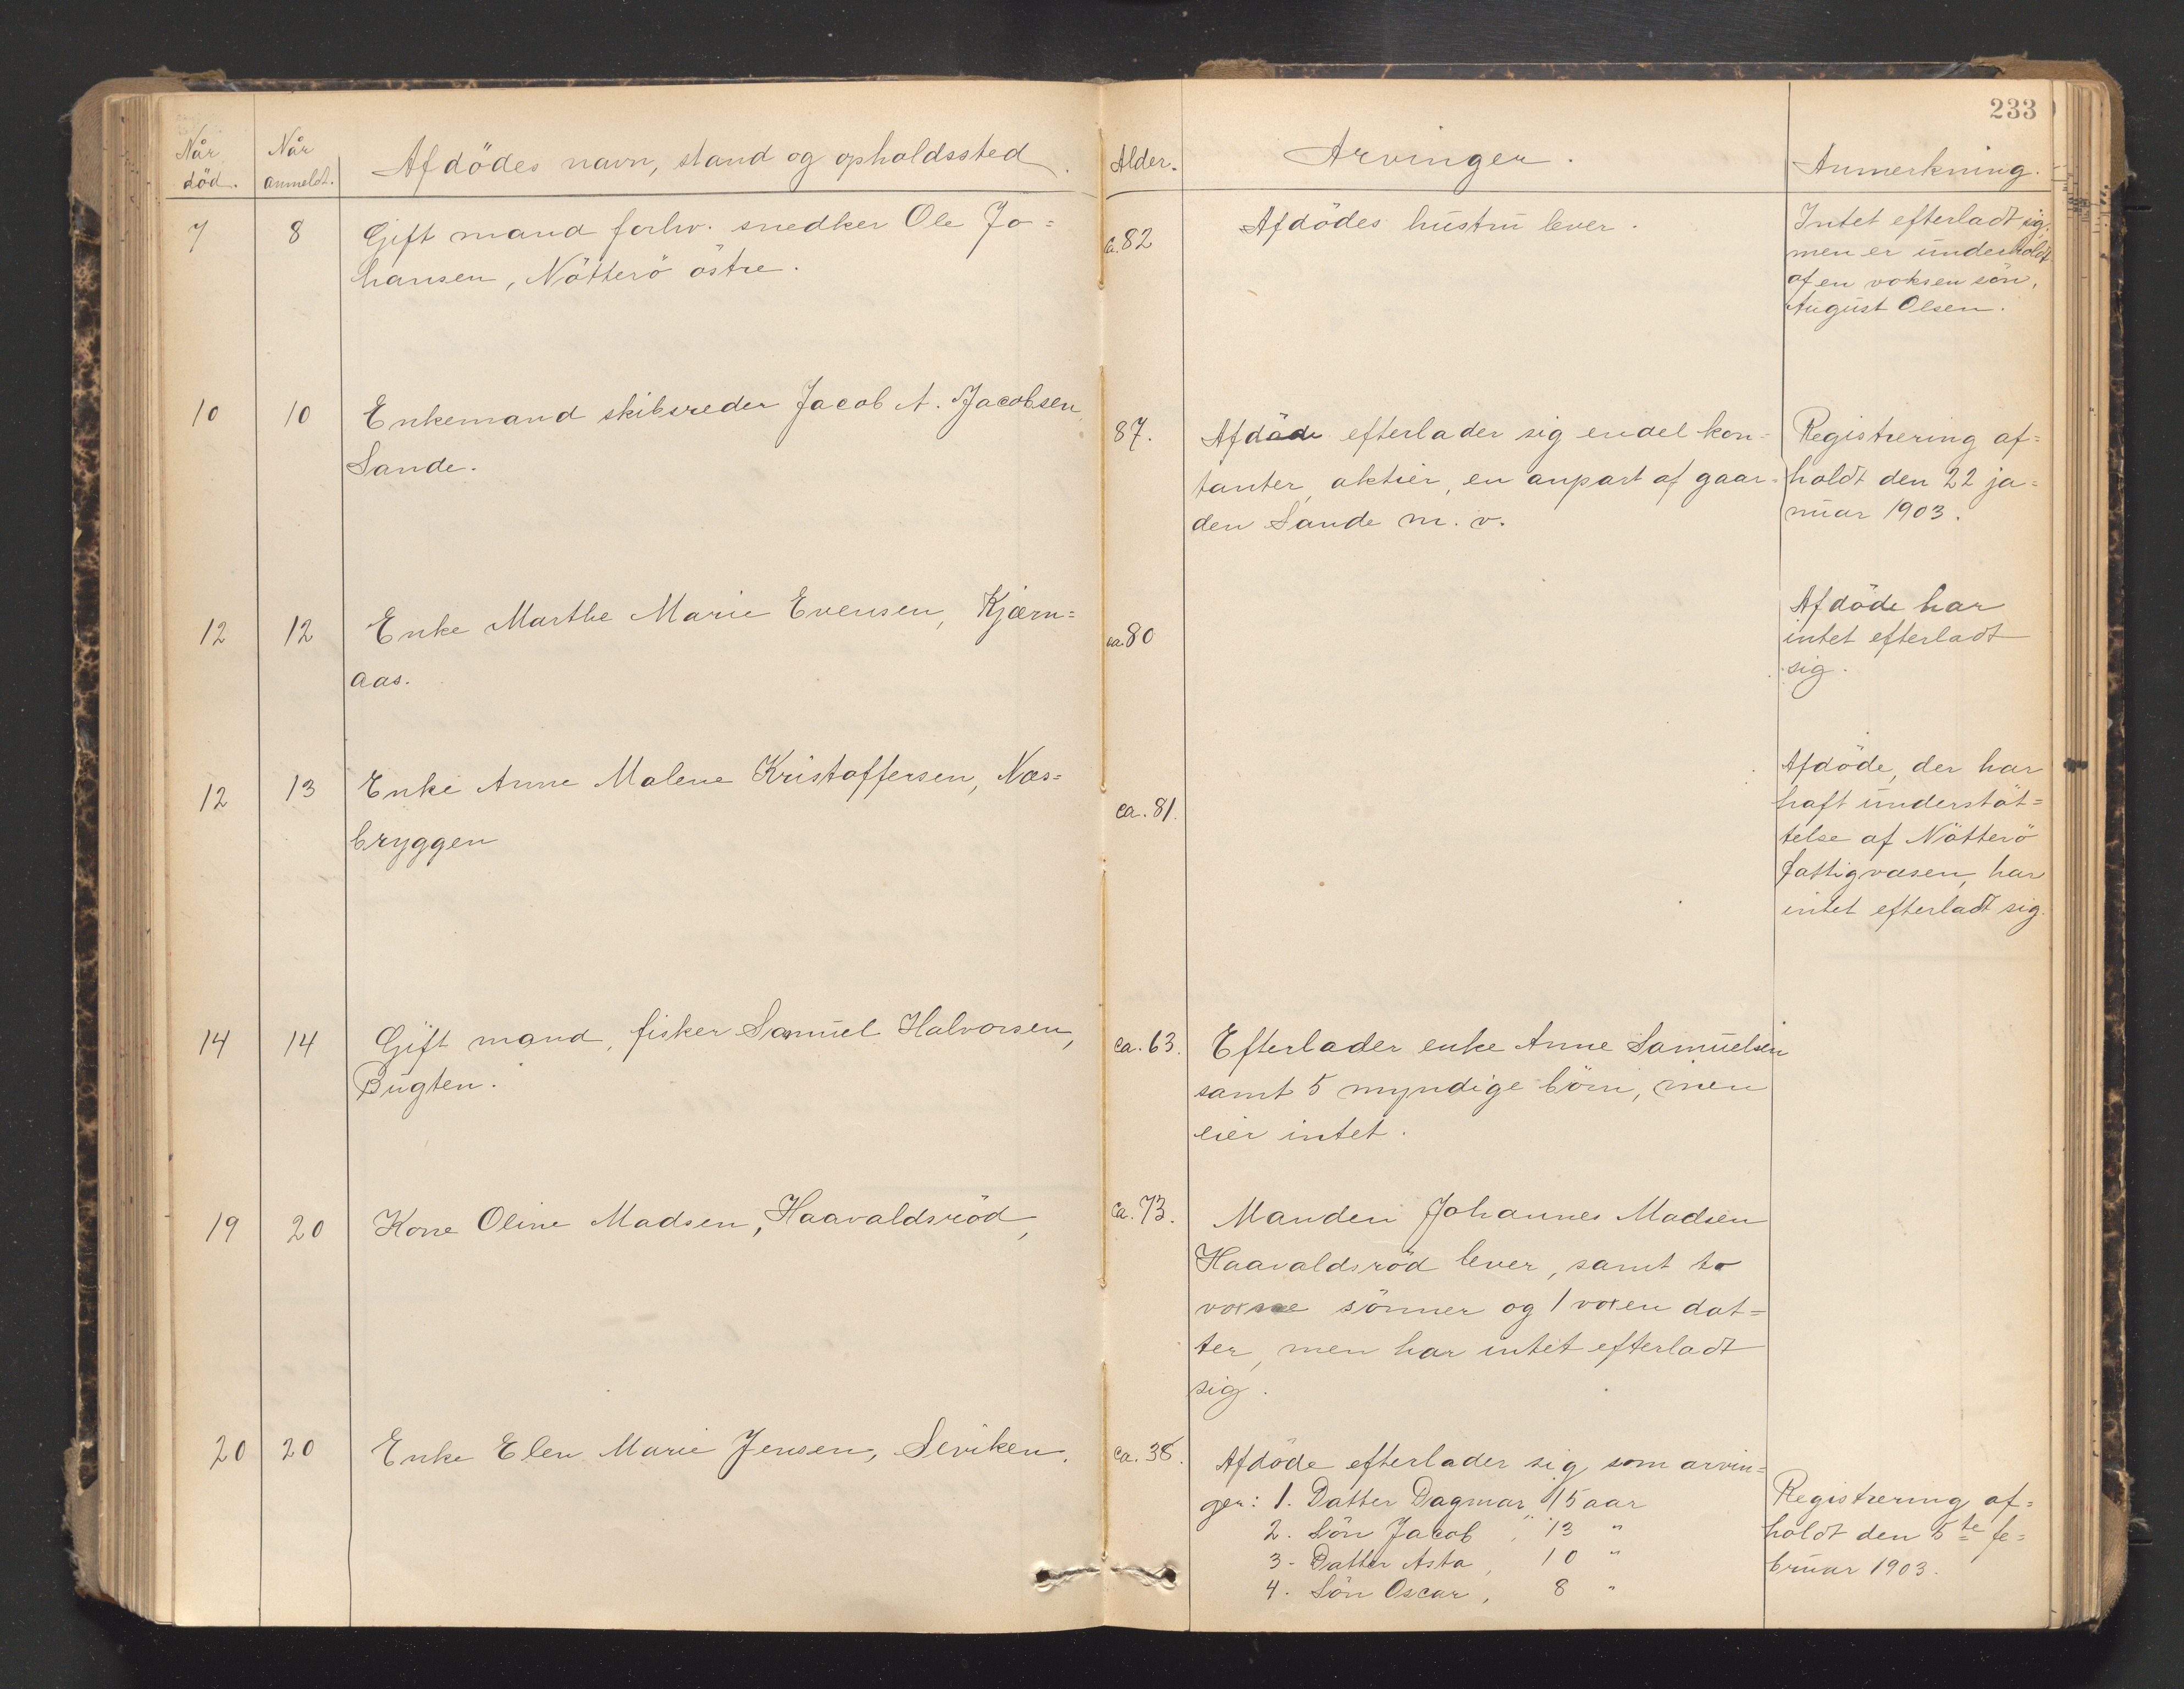 233
Når död. Når anmeldt. Afdödes navn, stand og opholdssted. Alder. Arvinger. Anmerkning.
7 8 Gift mand forhv. snedker Ole Jo=
hansen, Nötterö östre.
ca. 82
Afdödes hustru lever.
Intet efterladt sig,
men er underholdt
af en voksen sön,
August Olsen.
10 10 Enkemand skibsreder Jacob A. Jacobsen
Sande.
87.
Afdöde efterlader sig endel kon=
tanter, aktier, en anpart af gaar=
den Sande m. v.
Registrering af=
holdt den 22 ja=
nuar 1903.
12 12 Enke Marthe Marie Evensen, Kjærn=
aas.
ca. 80
Afdöde har
intet efterladt
sig.
12 13 Enke Anne Malene Kristoffersen, Næs=
bryggen
ca. 81.
Afdöde, der har
haft understöt=
telse af Nötterö
fattigvæsen, har
intet efterladt sig.
14 14 Gift mand, fisker Samuel Halvorsen,
Bugten.
ca. 63.
Efterlader enke Anne Samuelsen
samt 5 myndige börn, men
eier intet.
19 20 Kone Oline Madsen, Haavaldsröd,
ca. 73.
Manden Johannes Madsen
Haavaldsröd lever, samt to
voxne sönner og 1 voxen dat=
ter, men har intet efterladt
sig.
20 20 Enke Elen Marie Jensen, Seviken.
ca. 38.
Afdöde efterlader sig som arvin=
ger: 1. Datter Dagmar, 15 aar
2. Sön Jacob, 13 "
3. Datter Asta, 10 "
4. Sön Oscar, 8 "
Registrering af=
holdt den 5te fe=
bruar 1903.